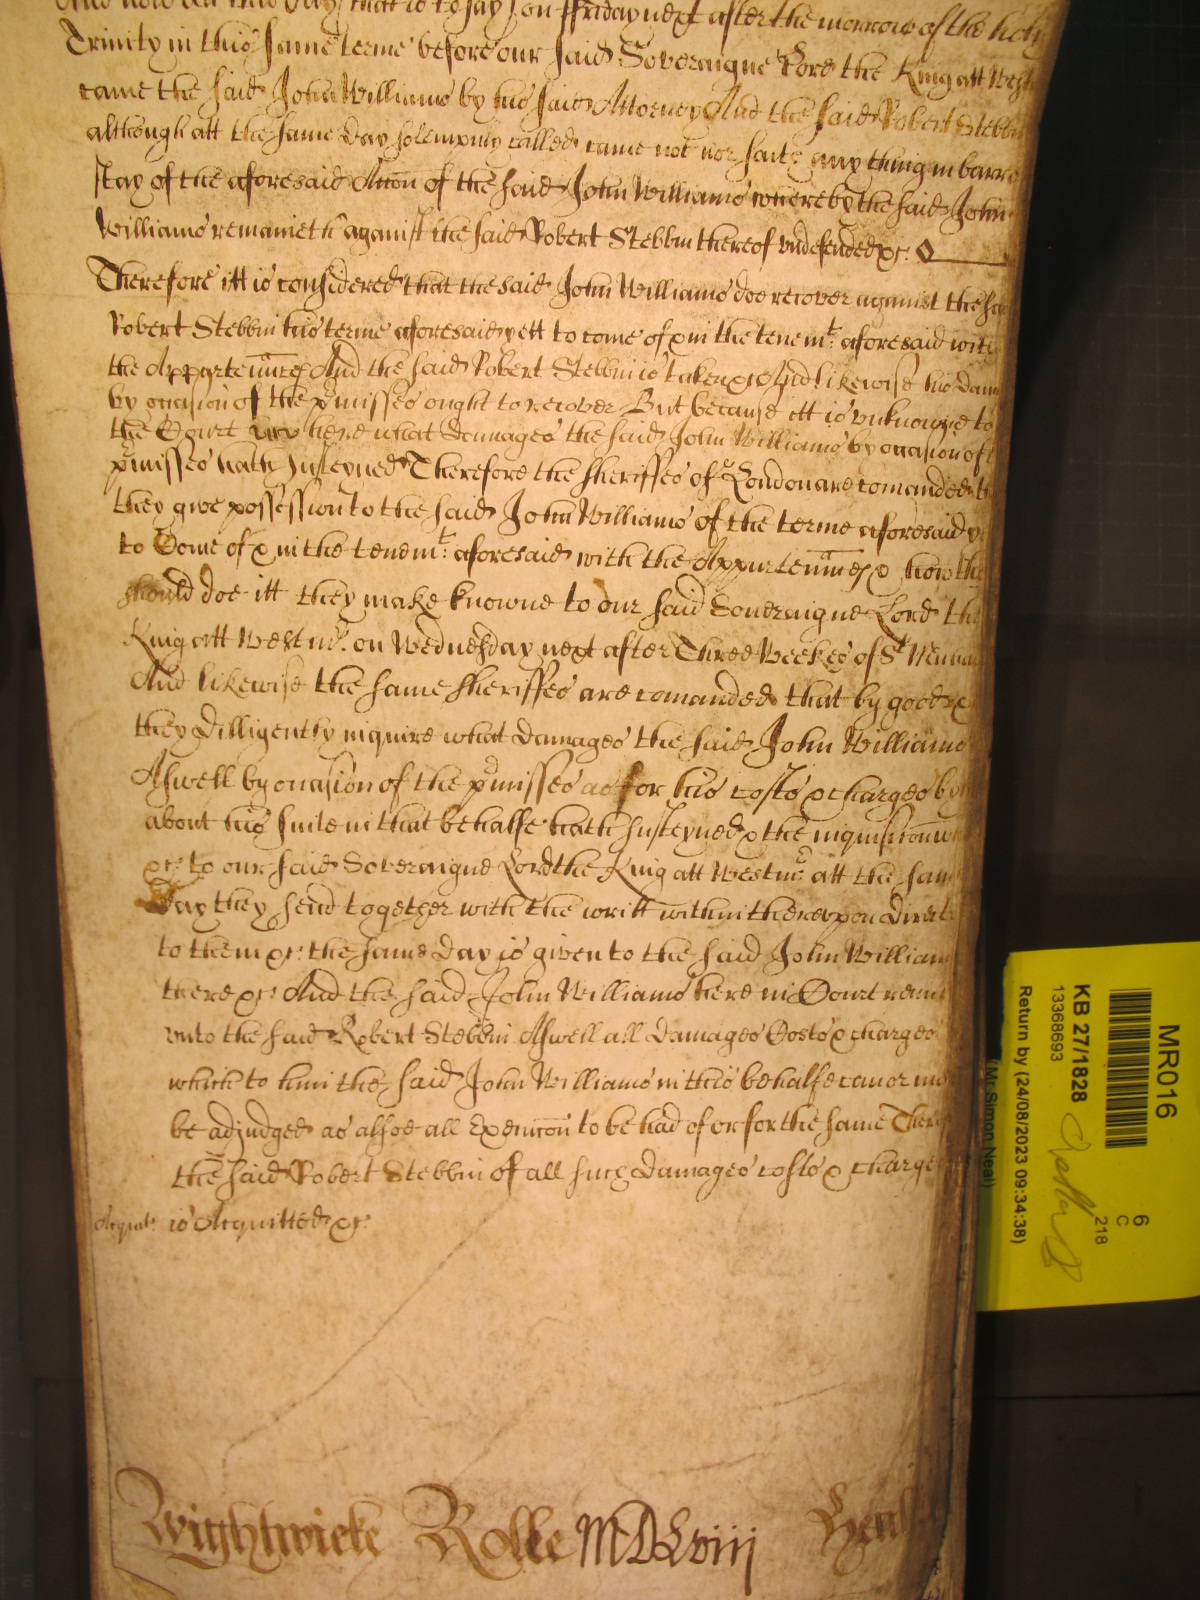 And now att this day that is to say on Ffriday next after the morrow of the holy
Trinity in this same terme before our said Soveraigne Lord the King att Westm
came the said John Williams by his said Attorney And the said Robert Stebbin
although att the same day solempnly called came not nor saith any thing in barre
stay of the aforesaid Accon of the said John Williams whereby the said John
Williams remaineth against the said Robert Stebbin thereof undefended &c:
Therefore itt is considered that the said John Williams doe recover against the said
Robert Stebbin his terme aforesaid yett to come of & in the tenemt: aforesaid with
the Appurtennces And the said Robert Stebbin is taken &c And likewise his dam
by occasion of the pmisses ought to recover But because itt is unknowne to
the Court here what damages the said John Williams by occasion of t
pmisses hath susteyned Therefore the sheriffes of London are comanded th
they give possession to the said John Williams of the terme aforesaid y
to Come of & in the tenemt: aforesaid with the Appurtennces & how the
should doe itt they make knowne to our said Soveraigne Lord the
King att Westmr. on Wednesday next after Three Weekes of St Michae
And likewise the same sheriffes are comanded that by good &
they dilligently inquire what damages the said John Williams
Aswell by occasion of the pmisses as for his costs & charges by
about his suite in that behalfe hath susteyned & the inquisicon w
&c: to our said Soveraigne Lord the King att Westmr: att the same
Day they send together with the writt within thereupon directe
to them &c: the same day is given to the said John William
there &c: And the said John Williams here in Court remi
unto the said Robert Stebbin Aswell all damages Costs & charges
which to him the said John Williams in this behalfe can or ma
be adjudged as alsoe all Execucon to be had of or for the same Theref
the said Robert Stebbin of all such damages costs & charges
Acquiet: is Acquitted &c:
Wightwicke Rolle MDLviij
MR016
KB 27/1828
13368693
6
C
218
Return by (24/08/2023 09:34:38)
(Mr Simon Neal)